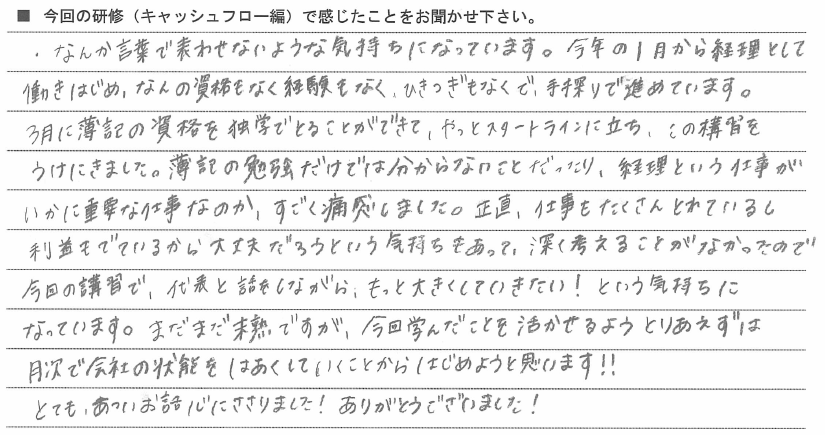 ■ 今回の研修（キャッシュフロー編）で感じたことをお聞かせ下さい。
・なんか言葉で表わせないような気持ちになっています。今年の1月から経理として
働きはじめ、なんの資格もなく経験もなく、ひきつぎもなくで、手探りで進めています。
3月に簿記の資格を独学でとることができて、やっとスタートラインに立ち、この講習を
うけにきました。簿記の勉強だけでは分からないことだったり、経理という仕事が
いかに重要な仕事なのか、すごく痛感しました。正直、仕事もたくさんとれているし
利益もでているから大丈夫だろうという気持ちもあって、深く考えることがなかったので
今回の講習で、代表と話をしながら、もっと大きくしていきたい！という気持ちに
なっています。まだまだ未熟ですが、今回学んだことを活かせるようとりあえずは
月次で会社の状態をはあくしていくことからはじめようと思います!!
とても、あついお話心にささりました！ありがとうございました！